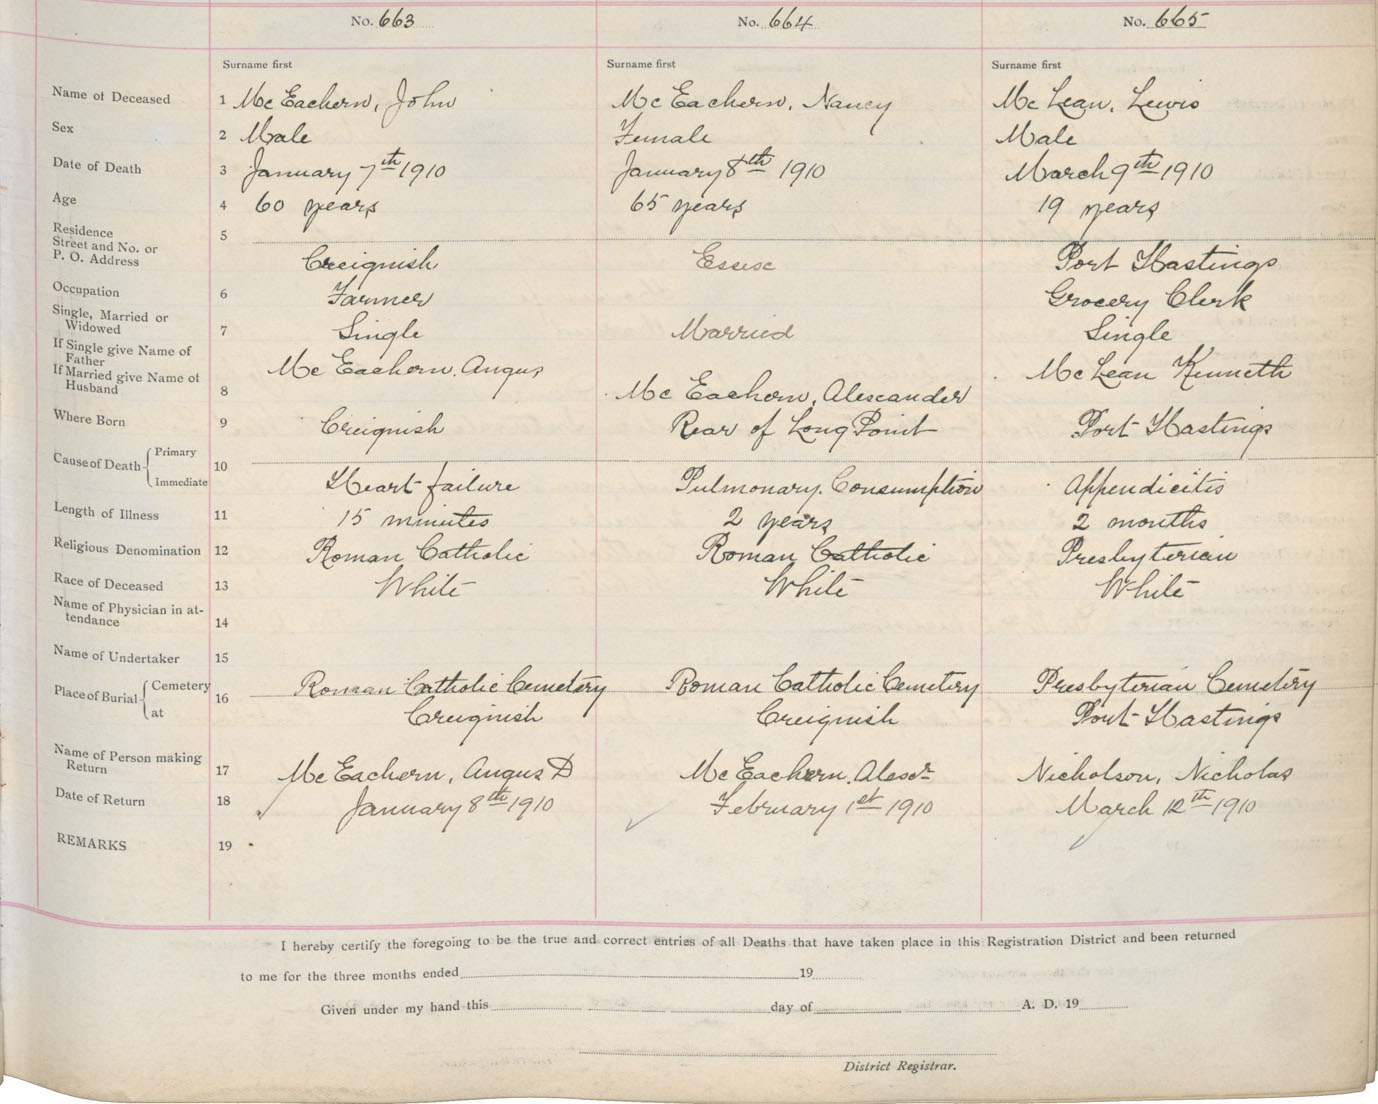 No. 663 No. 664 No. 665
Surname first Surname first Surname first
Name of Deceased 1 Mc Eachern, John Mc Eachern, Nancy Mc Lean, Lewis
Sex 2 Male Female Male
Date of Death 3 January 7th 1910 January 8th 1910 March 9th 1910
Age 4 60 years 65 years 19 years
Residence 5
Street and No. or
P. O. Address Creignish Essex Port Hastings
Occupation 6 Farmer Grocery Clerk
Single, Married or
Widowed 7 Single Married Single
If Single give Name of
Father Mc Eachern, Angus Mc Lean Kenneth
If Married give Name of
Husband 8 Mc Eachern, Alexander
Where Born 9 Creignish Rear of Long Point Port Hastings
Cause of Death Primary 10
Immediate Heart failure Pulmonary Consumption Appendicitis
Length of Illness 11 15 minutes 2 years 2 months
Religious Denomination 12 Roman Catholic Roman Catholic Presbyterian
Race of Deceased 13 White White White
Name of Physician in at-
tendance 14
Name of Undertaker 15
Place of Burial Cemetery 16 Roman Catholic Cemetery Roman Catholic Cemetery Presbyterian Cemetery
at Creignish Creignish Port Hastings
Name of Person making
Return 17 Mc Eachern, Angus D Mc Eachern, Alexr Nicholson, Nicholas
Date of Return 18 January 8th 1910 February 1st 1910 March 12th 1910
REMARKS 19
I hereby certify the foregoing to be the true and correct entries of all Deaths that have taken place in this Registration District and been returned
to me for the three months ended 19
Given under my hand this day of A. D. 19
District Registrar.